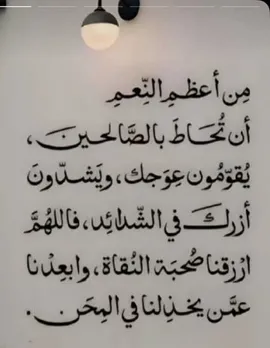 مِن أعظمِ النِّعمِ
أن تُحَاطَ بالصَّالحينَ،
يُقوّمُون عِوَجك، ويَشدّونَ
أزركَ في الشّدائِد، فاللهُمَّ
ارْزقنا صُحبَة النُقاة، وابعِدْنا
عمَّن يخذِلنا في المِحَن.